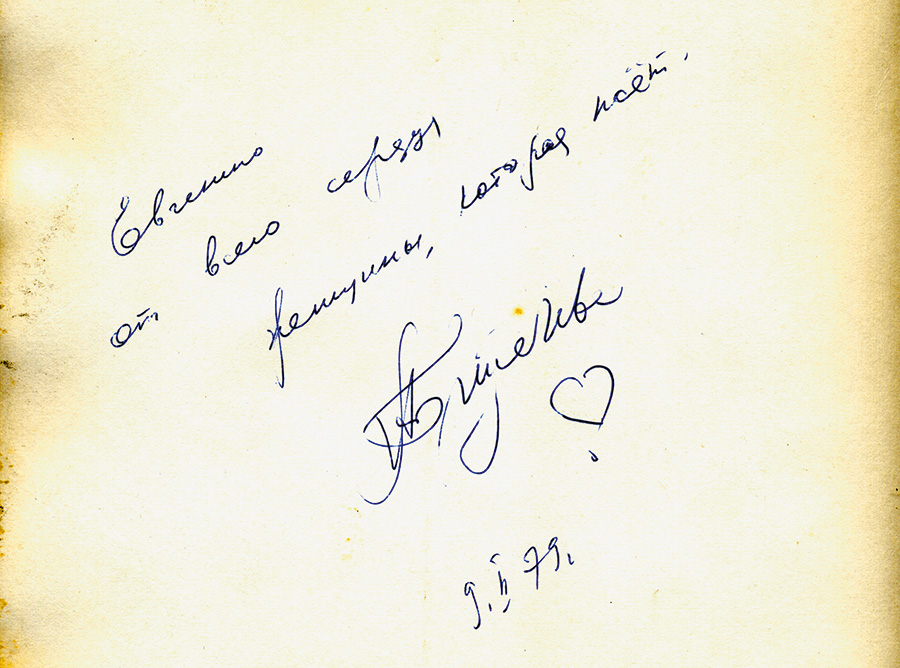 Евгению
от всего сердца
женщины, которая поёт.
АПугачева
9.II 79.